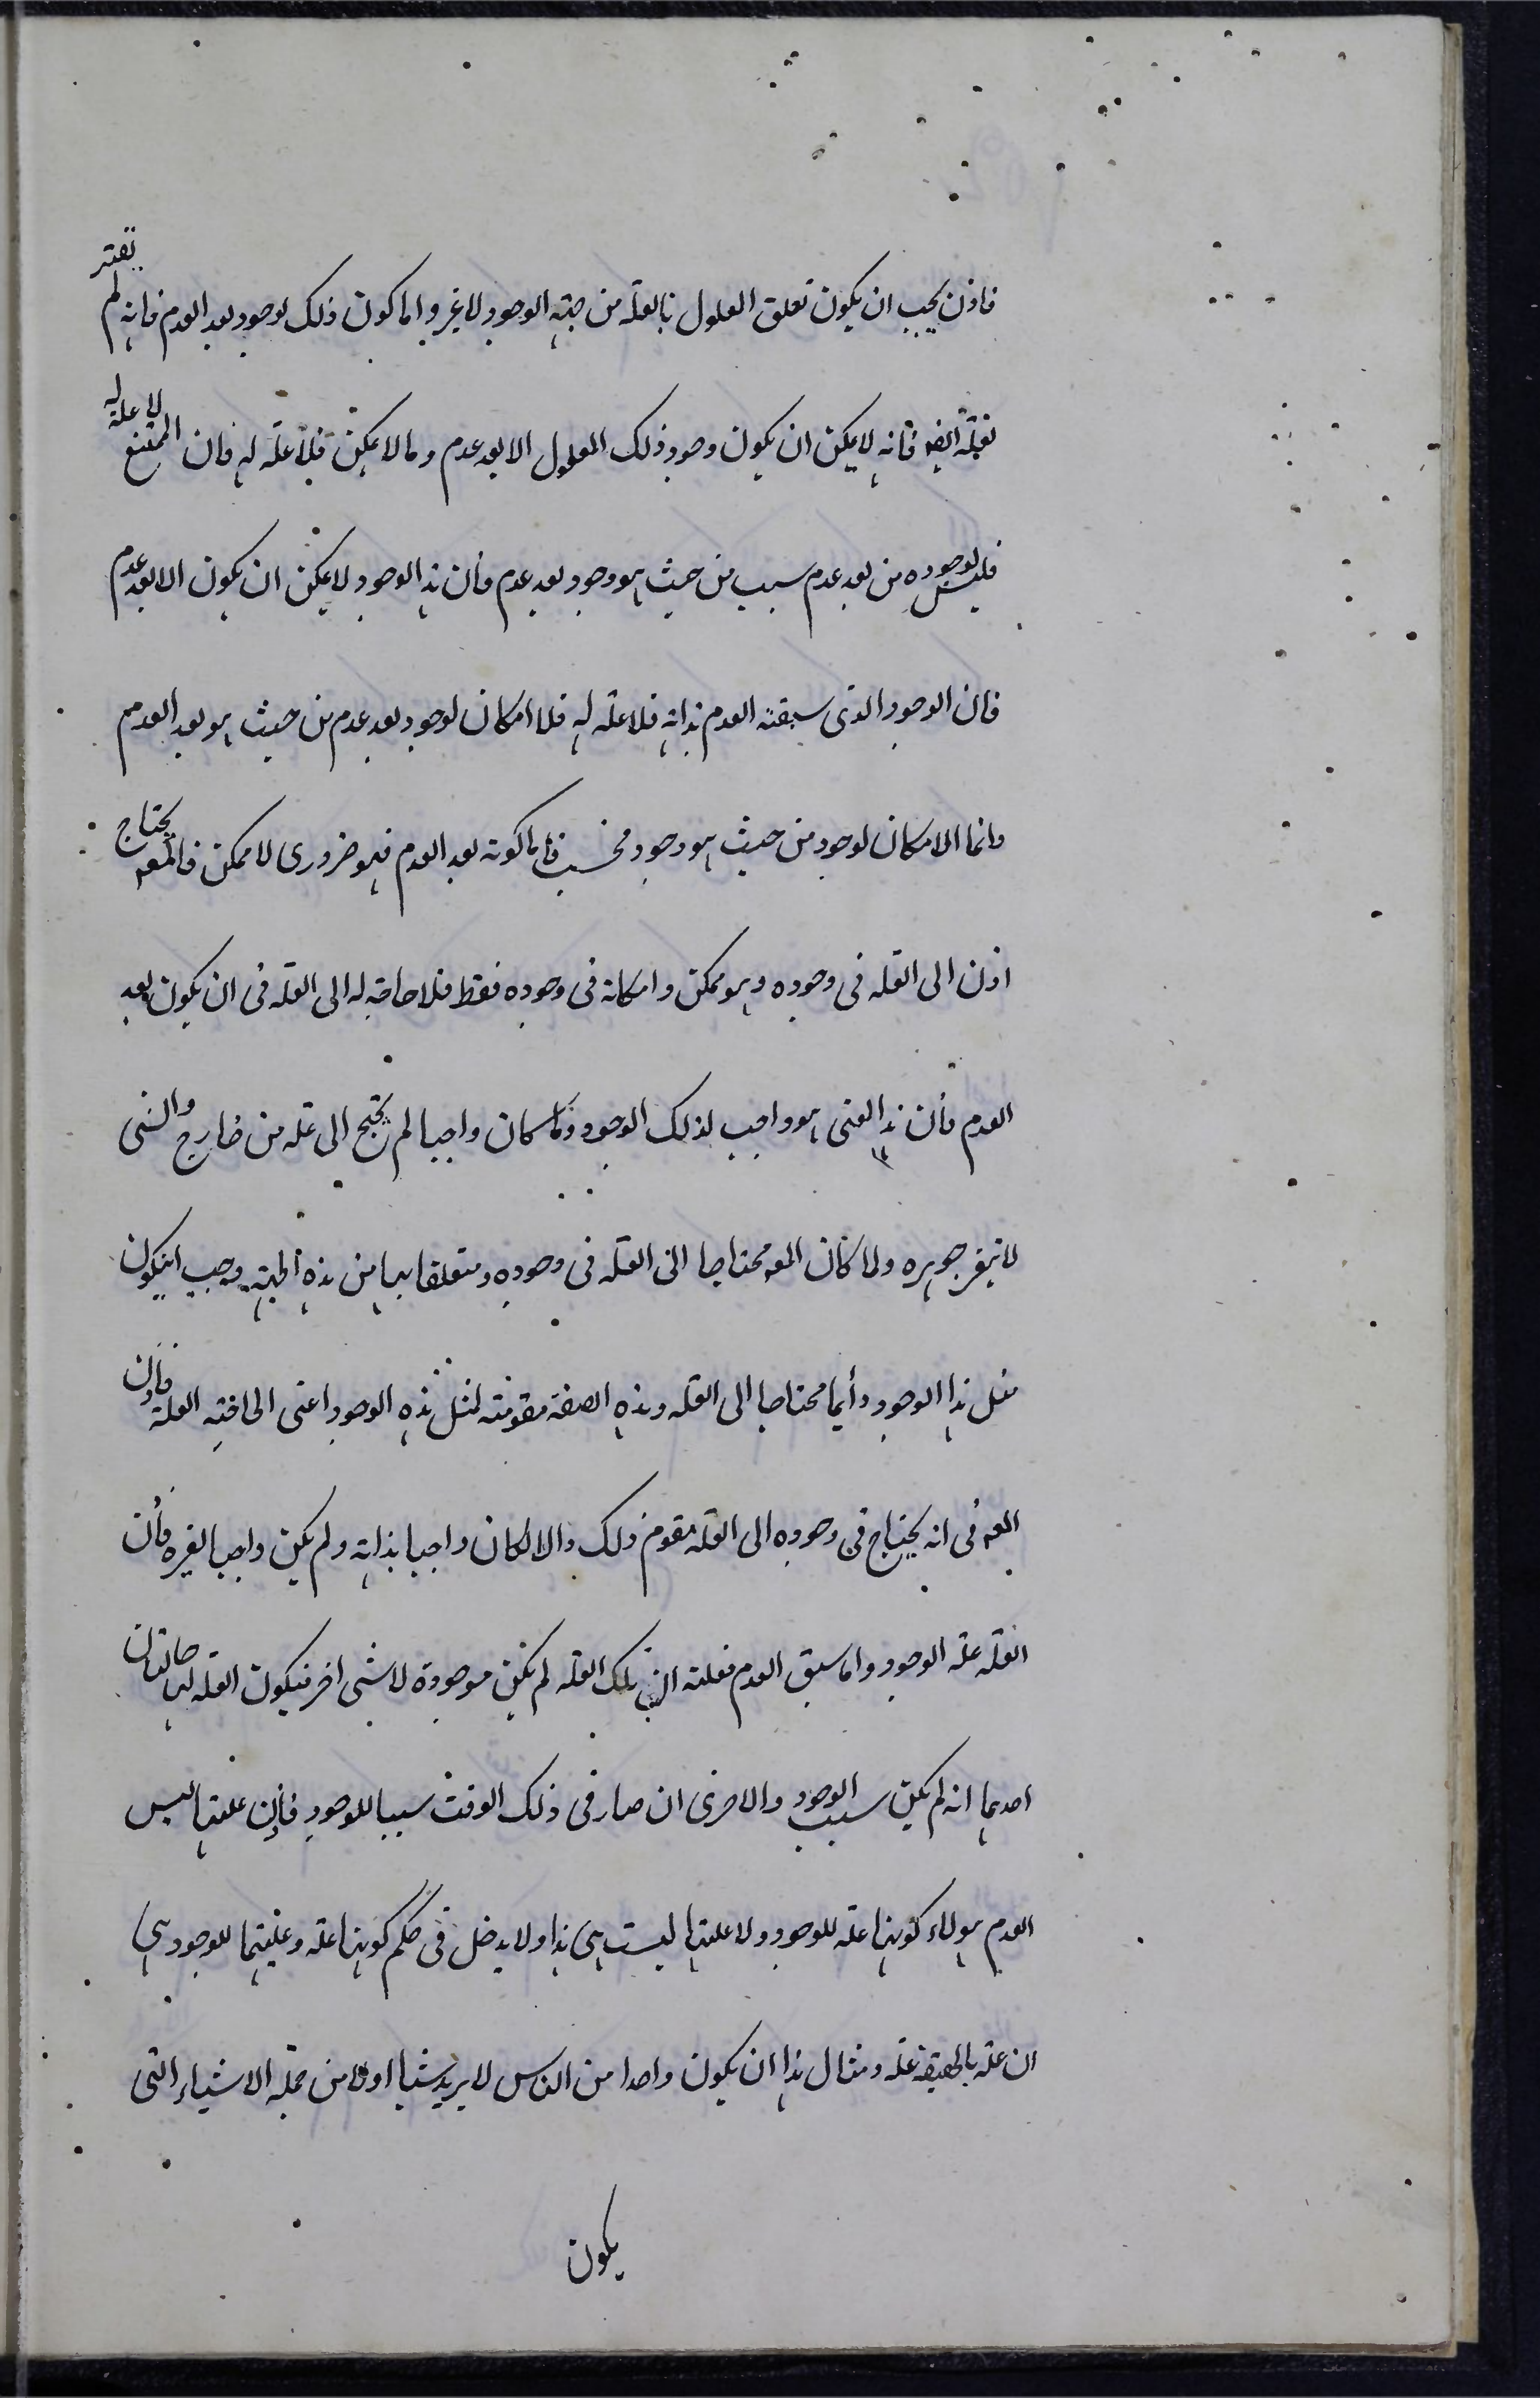 فاذن يجب ان يكون تعلق المعلول بالعلة من جهة الوجود لا غير واما كون ذلك الوجود بعد العدم فانه لم يفتقر
لعلة ايضا فانه لا يمكن ان يكون وجود ذلك المعلول الا بعد عدم وما لا يمكن فلا علة له فان الممتنع لا علة له
فليس لوجوده من بعد عدم سبب من حيث هو وجود بعد عدم فان هذا الوجود لا يمكن ان يكون الا بعد عدم
فان الوجود الذى سبقته العدم بذاته فلا علة له فلا امكان لوجود بعد عدم من حيث هو بعد العدم
وانما الامكان لوجود من حيث هو وجود فحسب فاما كونه بعد العدم فهو ضرورى لا ممكن فالمعه يحتاج
اذن الى العلة فى وجوده وهو ممكن وامكانه فى وجوده فقط فلا حاجة له الى العلة فى ان يكون بعد
العدم فان هذا المعنى هو واجب لذلك الوجود ولما كان واجبا لم يحتج الى علة من خارج والشى
لا يتغير جوهره ولما كان المعه محتاجا الى العلة فى وجوده ومتعلقا بها من هذه الجهة وجب ان يكون
مثل هذا الوجود دائما محتاجا الى العلة وهذه الصفة مقومته لمثل هذه الوجود اعنى الحاجة العلة فاذن
المعه فى انه يحتاج فى وجوده الى العلة مقوم ذلك والا لكان واجبا بذاته ولم يكن واجبا لغيره فان
العلة علة الوجود واما سبق العدم فعلته ان تلك العلة لم تكن موجودة لا شى اخر فيكون العلة لها حالتان
احديهما انه لم يكن سبب الوجود والاخرى ان صار فى ذلك الوقت سببا للوجود فاذن علتها ليس
العدم هو لا كونها علة للوجود ولا علتها ليست هى هذا ولا يدخل فى حكم كونها علة وعليتها للوجود هى
ان علة بالحقيقة علة ومثال هذا ان يكون واحدا من الناس لا يريد شيئا اولا من جملة الاشياء التى
يكون